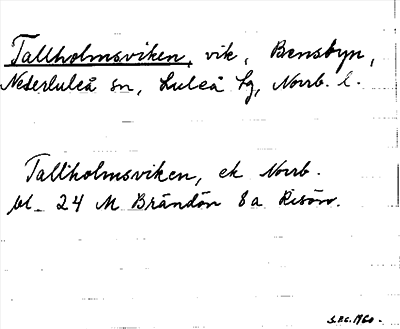 Tallholmsviken, vik, Bensbyn,
Nederluleå sn, Luleå tg, Norrb. l.
Tallholmsviken, ek Norrb.
bl. 24 M Brändön 8a Risön.
1960.